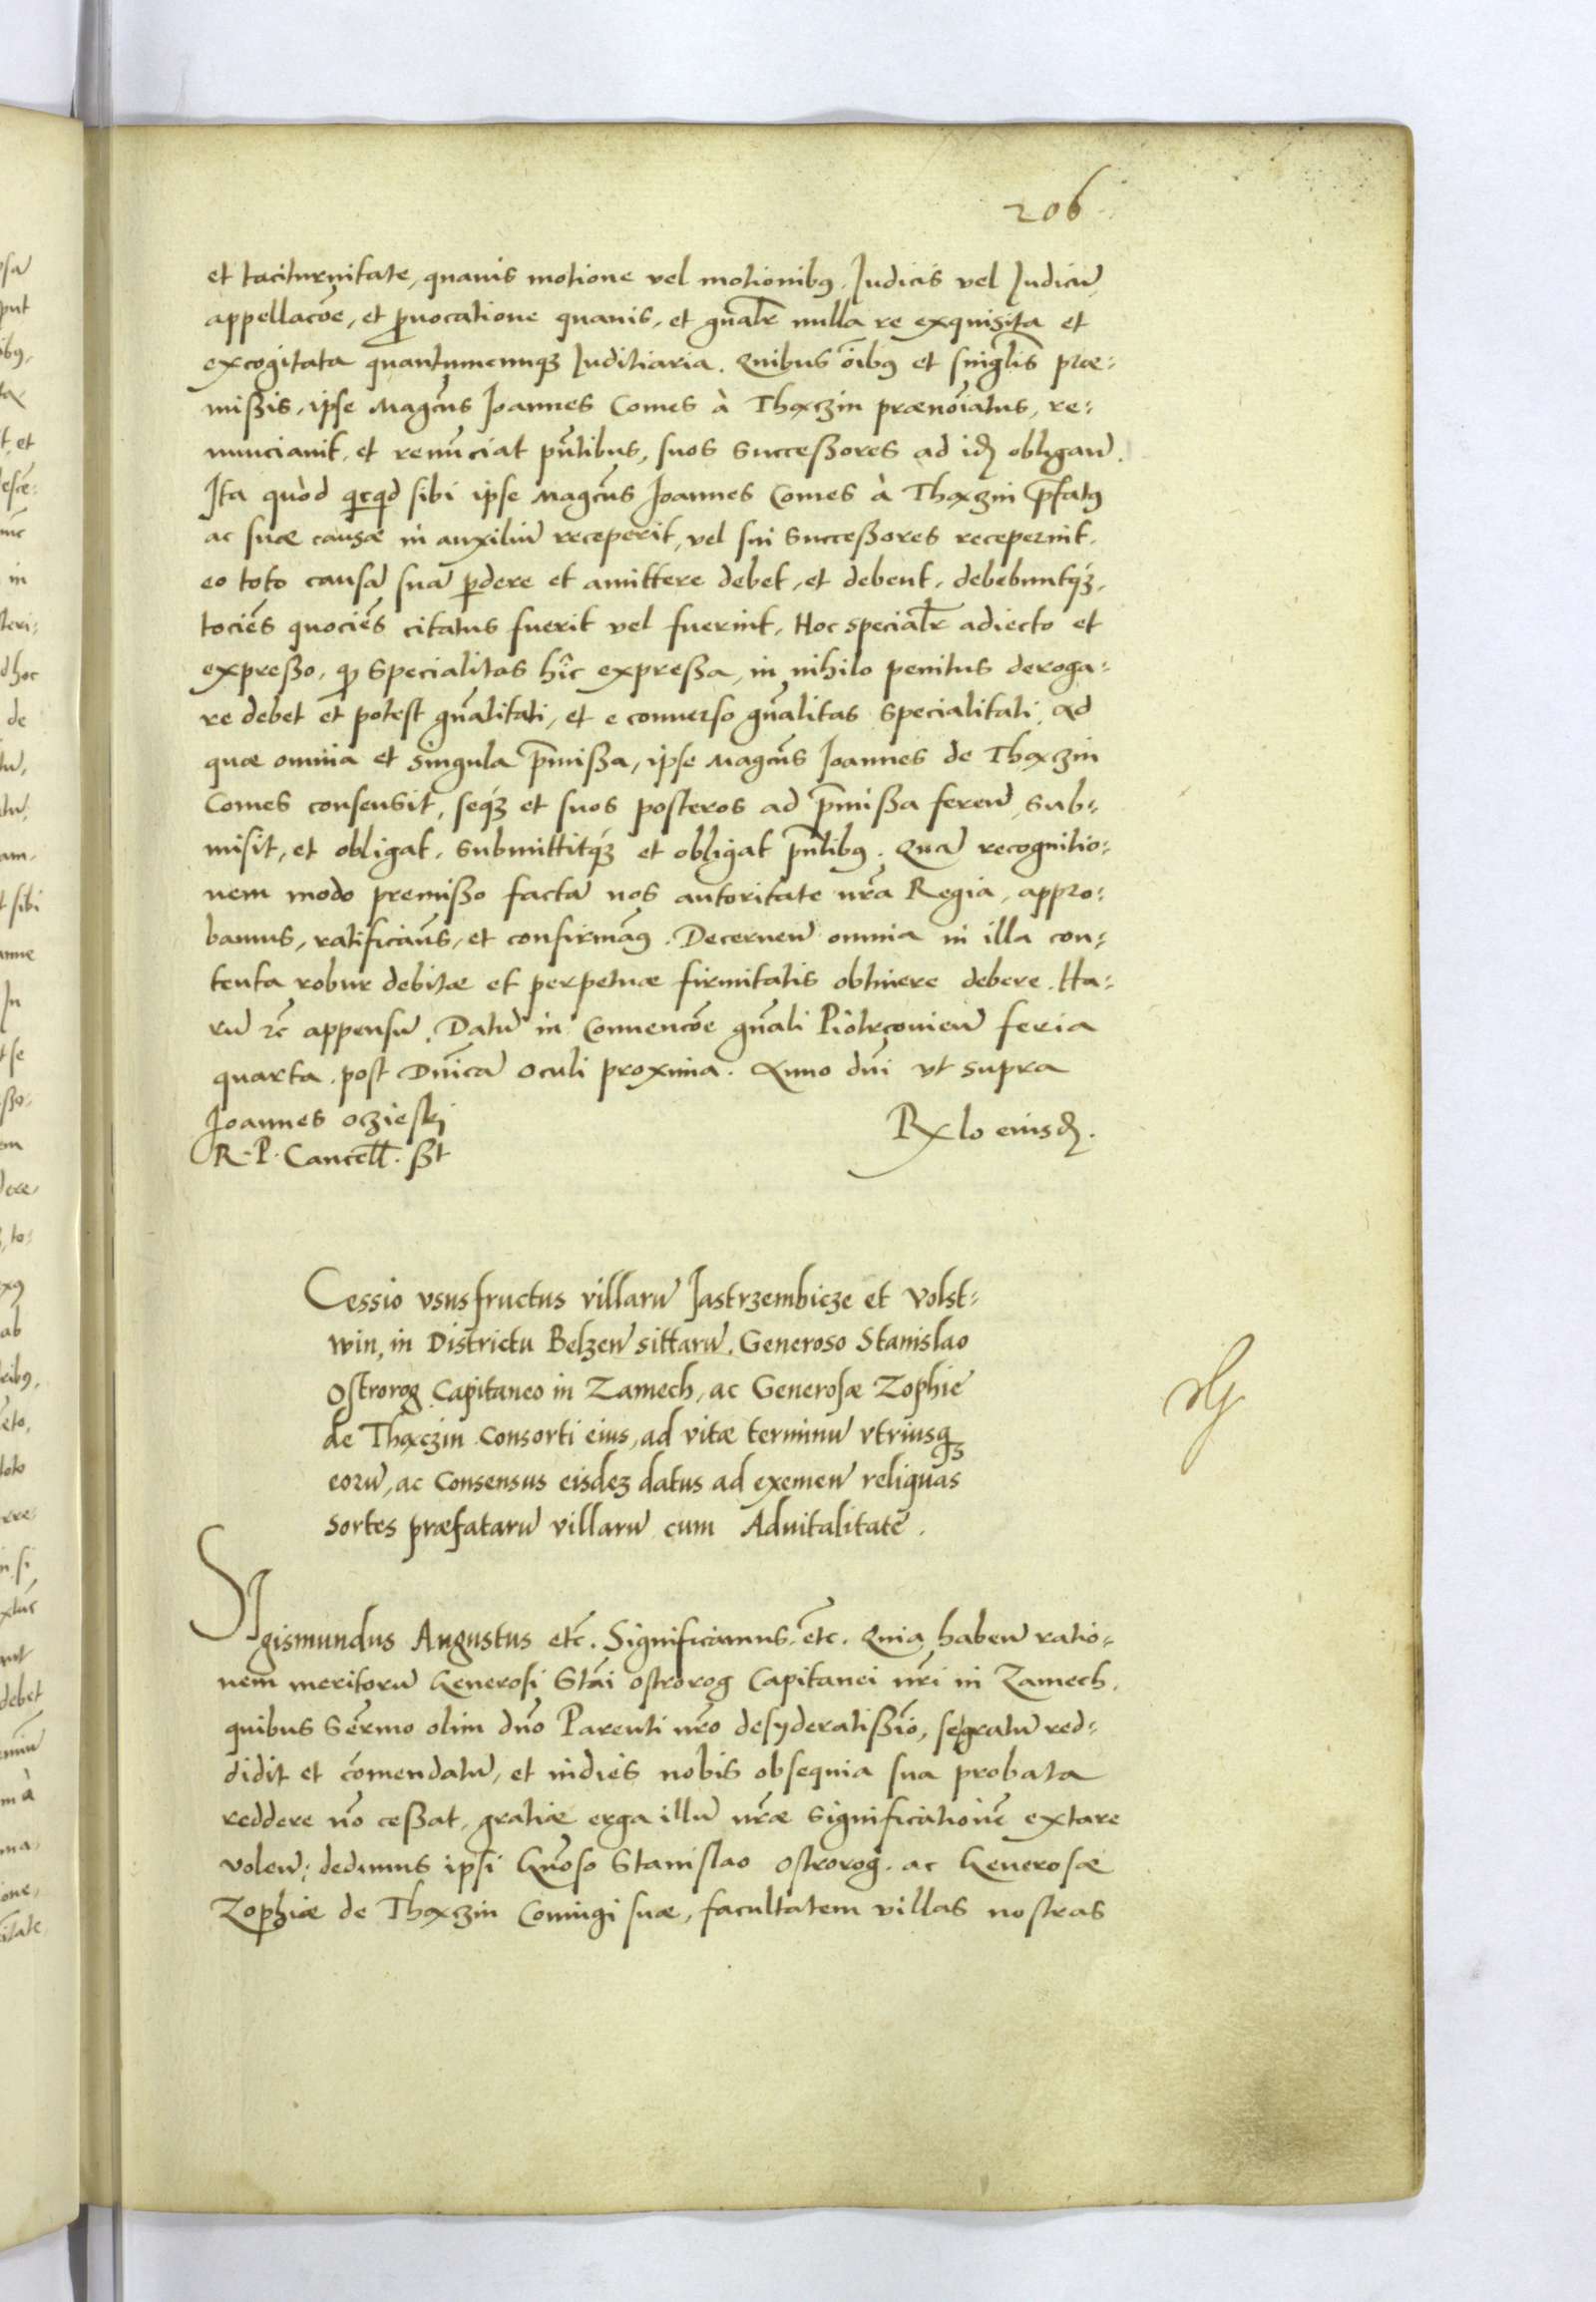 206
et taciturnitate, quauis motione vel motionibꝯ, Judicis vel Judicũ,
appellacõe, et ꝓuocatione quauis, et gñalr̃ nulla re exquisita et
excogitata quantumcunqꝫ Iuditiaria. Quibus õibꝯ et singl̃is præ-
mißis, ipse Magcũs Joannes Comes à Thaxczin prænoĩatus, re-
nunciauit, et renũciat pñtibus, suos Successores ad idẽ obligañ.
Ita quòd qͥcqͥd sibi ipse Magcũs Joannes Comes à Thaxczin p̃fatꝯ
ac suæ causæ in auxiliũ receperit, vel sui Successores receperint,
eo toto causã suã ꝑdere et amittere debet, et debent, debebuntqꝫ,
tociẽs quociẽs citatus fuerit vel fuerint, Hoc specialr̃ adiecto et
expreßo, ꝙ specialitas hîc expreßa, in nihilo penitus deroga-
re debet et potest gñalitati, et e conuerso gñalitas specialitati. Ad
quæ omnia et singula p̃mißa, ipse Magcũs Joannes de Thaxczin
Comes consensit, seqꝫ et suos posteros ad p̃mißa ferenđ, sub-
misit, et obligat, submittitqꝫ et obligat pñtibꝯ. Quã recognitio-
nem modo premißo factã nos autoritate nr̃a Regia, appro-
bamus, ratificam̃s, et confirmãꝯ. Decerneñ omnia in illa con-
tenta robur debitæ et perpetuæ firmitatis obtinere debere. Ha-
rũ etc̃ appensũ. Datũ in Conuencõe gñali Piotrcouieñ feria
quarta post Dnĩcã Oculi proxima. Anno dñi vt supra
Joannes Oczieski
R. P. Cancell. ßt
Rx̃lo eiusđ.
Cessio vsusfructus villarũ Jastrzembicze et Volst-
win, in Districtu Belzeñ sittarũ. Generoso Stanislao
Ostrorog Capitaneo in Zamech, ac Generosæ Zophie
de Thaxczin Consorti eius, ad vitæ terminũ vtriusqꝫ
eorũ, ac Consensus eisdeꝫ datus ad exemeñ reliquas
sortes præfatarũ villarũ cum Aduitalitate.
SIgismundus Augustus etc̃. Significamus etc̃. Quia habeñ ratio-
nem meritorũ Generosi Stãi Ostrorog Capitanei nr̃i in Zamech,
quibus Ser̃mo olim dño Parenti nr̃o desyderatißĩo, se gratũ red-
didit et cõmendatũ, et indies nobis obsequia sua probata
reddere nõ ceßat, gratiæ erga illũ nr̃æ significationẽ extare
voleñ: dedimus ipsi Gñoso Stanislao Ostrorog, ac Generosæ
Zophiæ de Thaxczin Coniugi suæ, facultatem villas nostras